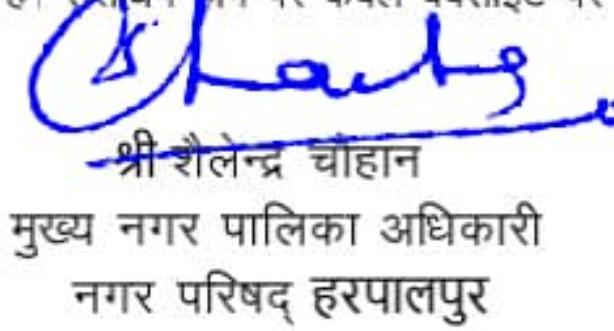 श्री शैलेन्द्र चौहान
मुख्य नगर पालिका अधिकारी
नगर परिषद् हरपालपुर